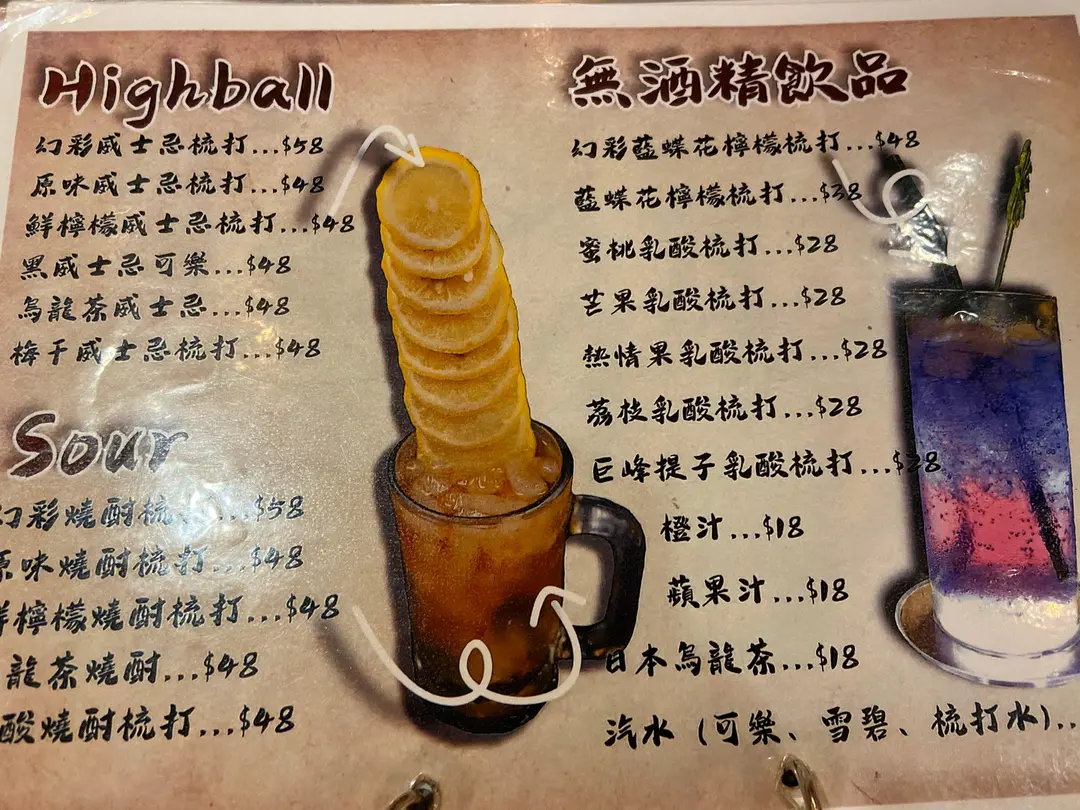 Highball
幻彩威士忌梳打...$58
原味威士忌梳打...$48
鮮檸檬威士忌梳打...$48
黑威士忌可樂...$48
烏龍茶威士忌...$48
梅干威士忌梳打...$48
Sour
幻彩燒酎梳...$58
原味燒酎梳打...$48
鮮檸檬燒酎梳打...$48
龍茶燒酎...$48
酸燒酎梳打...$48
無酒精飲品
幻彩藍蝶花檸檬梳打...$48
藍蝶花檸檬梳打...$38
蜜桃乳酸梳打...$28
芒果乳酸梳打...$28
熱情果乳酸梳打...$28
荔枝乳酸梳打...$28
巨峰提子乳酸梳打...$28
橙汁...$18
蘋果汁...$18
日本烏龍茶...$18
汽水（可樂、雪碧、梳打水)..